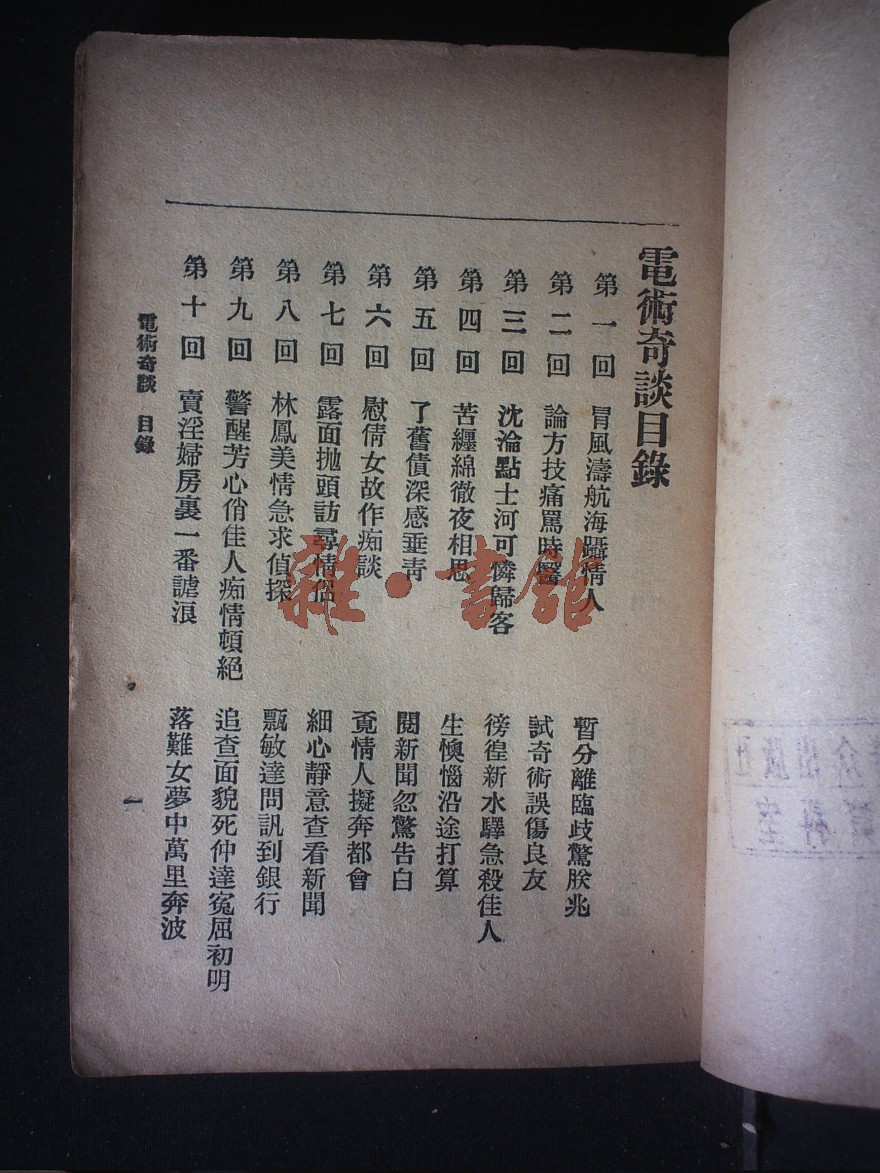 電術奇談目錄
第一回 冒風濤航海躡情人 暫分離臨歧驚朕兆
第二回 論方技痛罵時醫 試奇術誤傷良友
第三回 沈淪點士河可憐歸客 徬徨新水驛急殺佳人
第四回 苦纏綿徹夜相思 生懊惱沿途打算
第五回 了舊債深感垂靑 閱新聞忽驚告白
第六回 慰倩女故作痴談 覔情人擬奔都會
第七回 露面抛頭訪尋情侶 細心靜意查看新聞
第八回 林鳳美情急求偵探 甄敏達問訊到銀行
第九回 警醒芳心俏佳人痴情頓絕 追查面貌死仲達冤屈初明
第十回 賣淫婦房裏一番謔浪 落難女夢中萬里奔波
電術奇談 目錄
一
雜·書館
羣众出版社
資料室